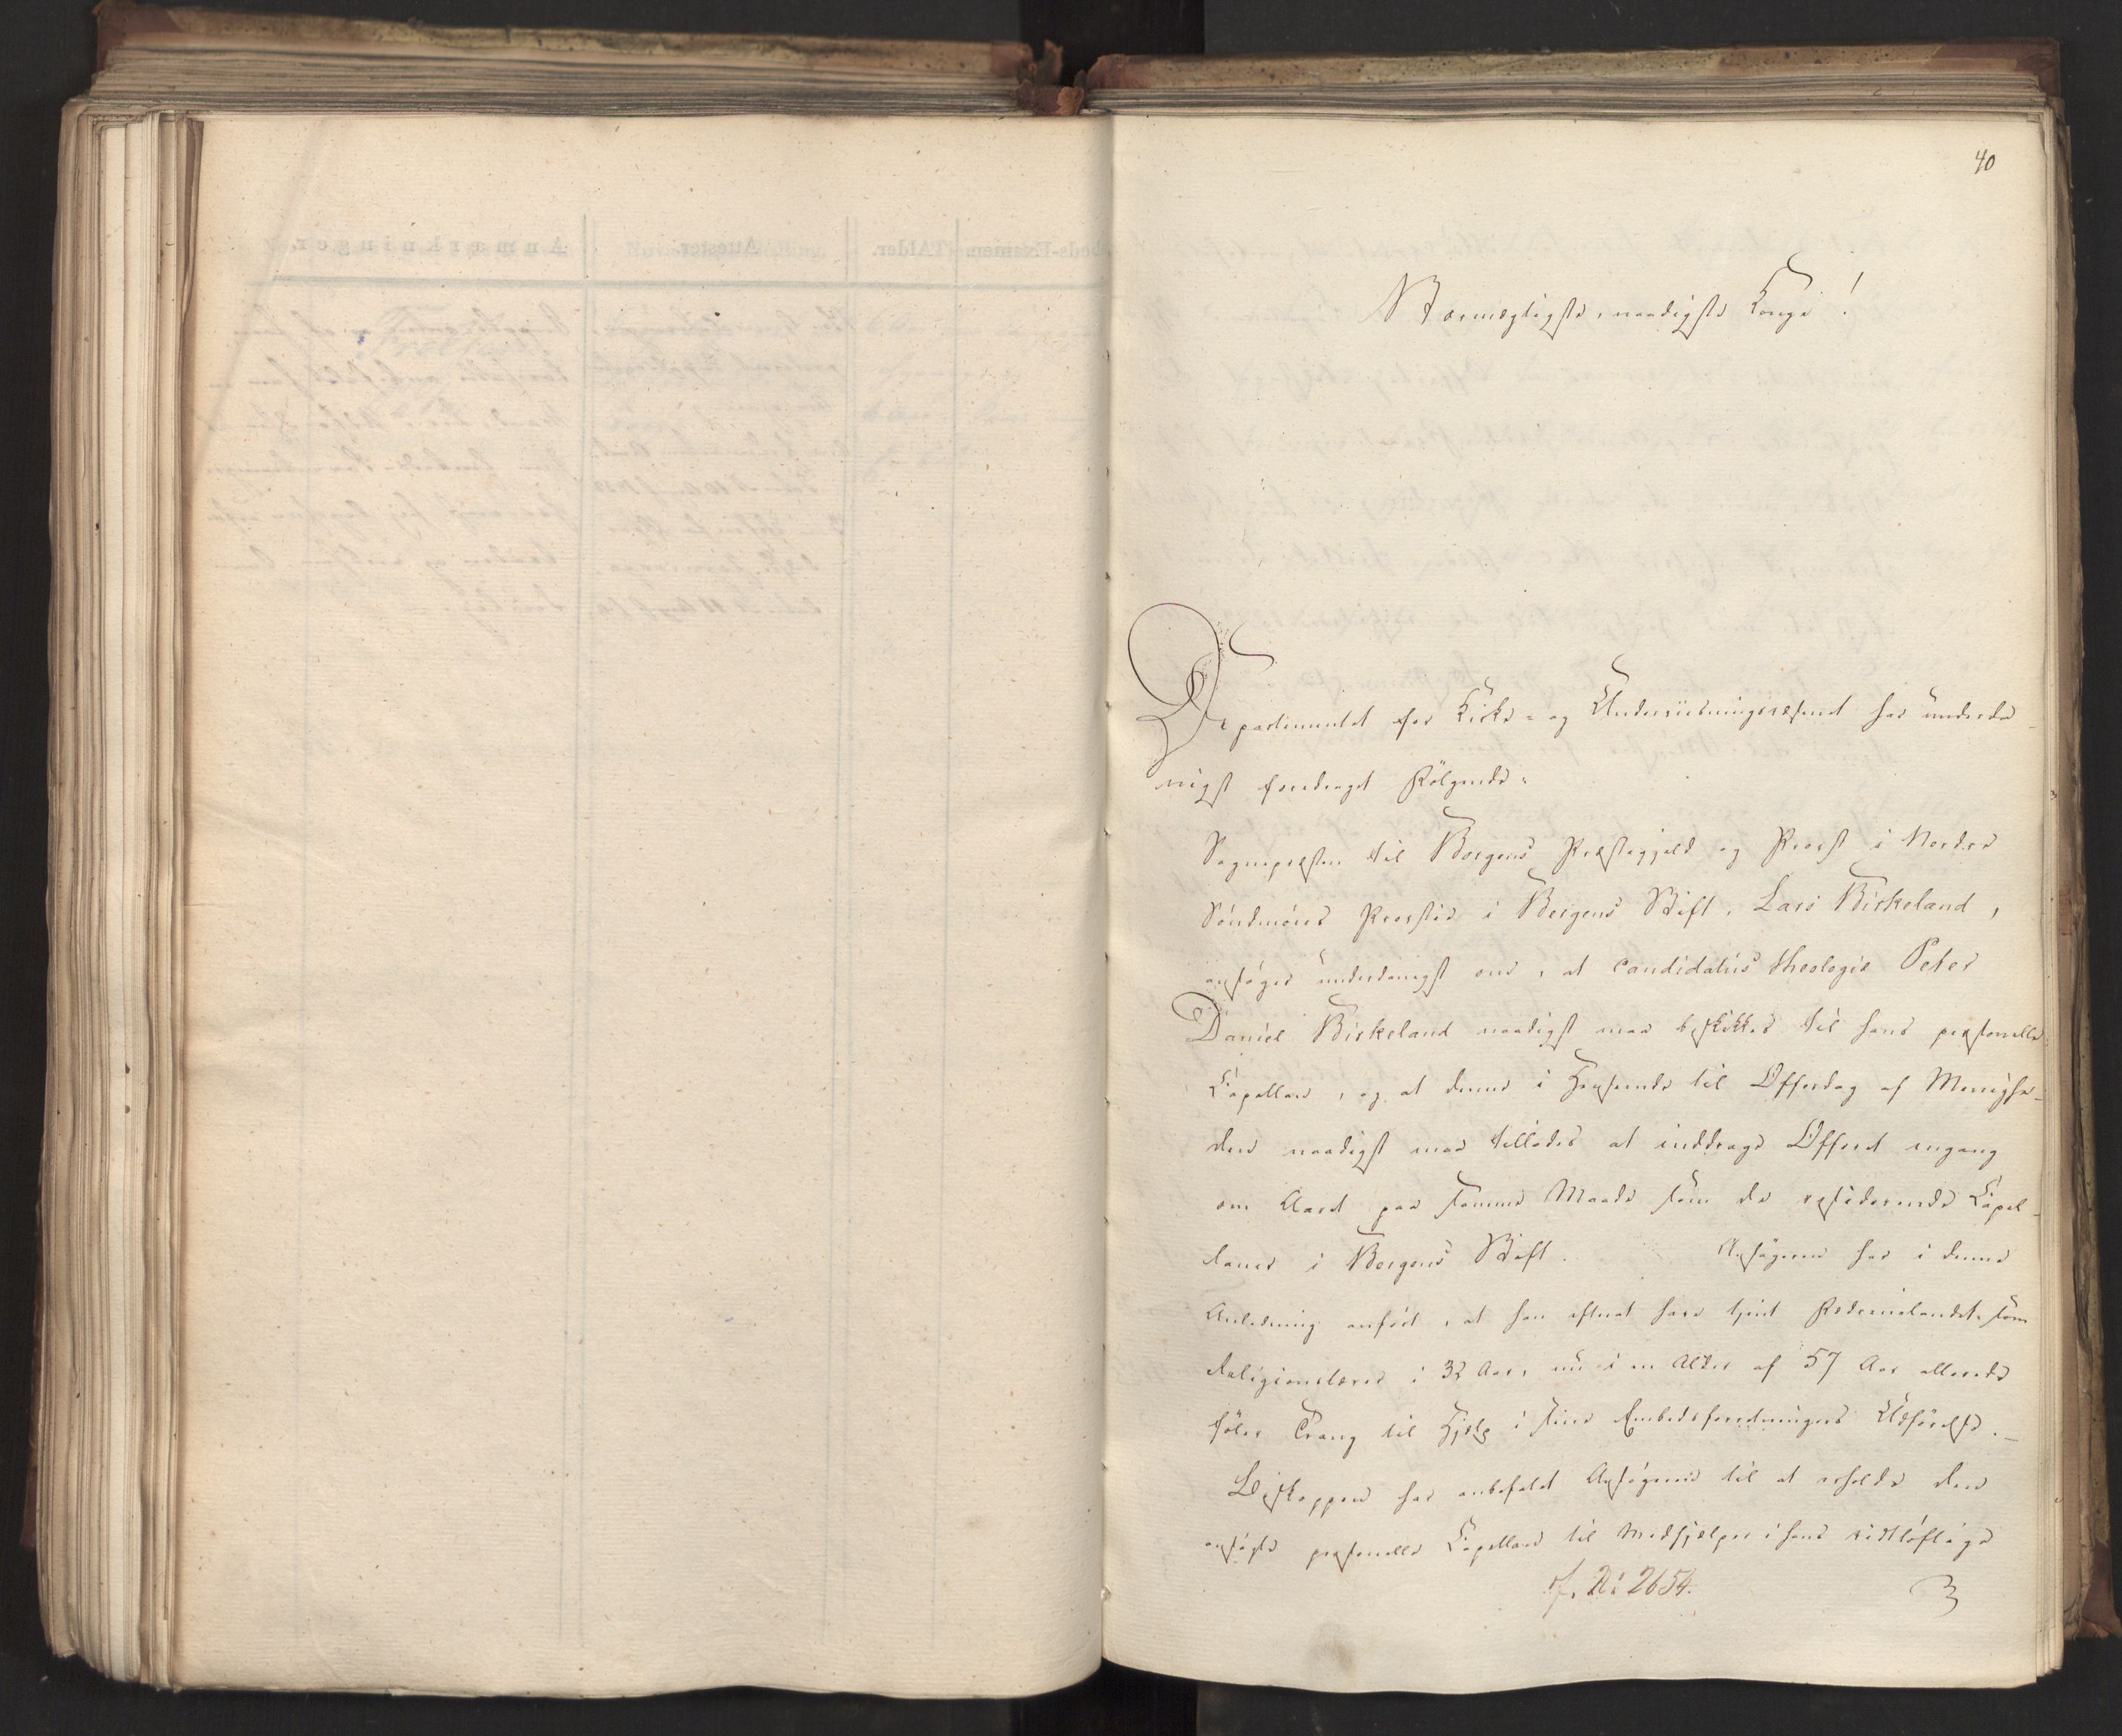 40
Stormægtigste, naadigste Konge!
Departementet for Kirke- og Underviisningsvæsenet har underda-
nigst foredraget Følgende:
Sognepræsten til Borgens Præstegjeld og Provst i Nordre
Söndmöres Provstie i Bergens Stift, Lars Birkeland,
ansöger underdanigst om, at candidatus theologiæ Peter
Daniel Birkeland naadigst maa beskikkes til hans personelle
Capellan, og at denne i Henseende til Offerdag af Menighe-
den naadigst maa tillades at inddrage Offeret engang
om Aaret paa samme Maade som de residerende Capel-
laner i Bergens Stift. Ansögeren har i denne
Anledning anfört, at han efterat have tjent Fædrenelandet som
Religionslærer i 32 Aar, nu i en Alder af 57 Aar allerede
föler Trang til Hjelp i sine Embedsforretningers Udförelse.—
Biskoppen har anbefalet Ansögeren til at erholde den
ansögte personelle Capellan til Medhjelper i hans vidtlöftige
cf. R: 2654.
Anmærkninger.
Attester.
Alder.